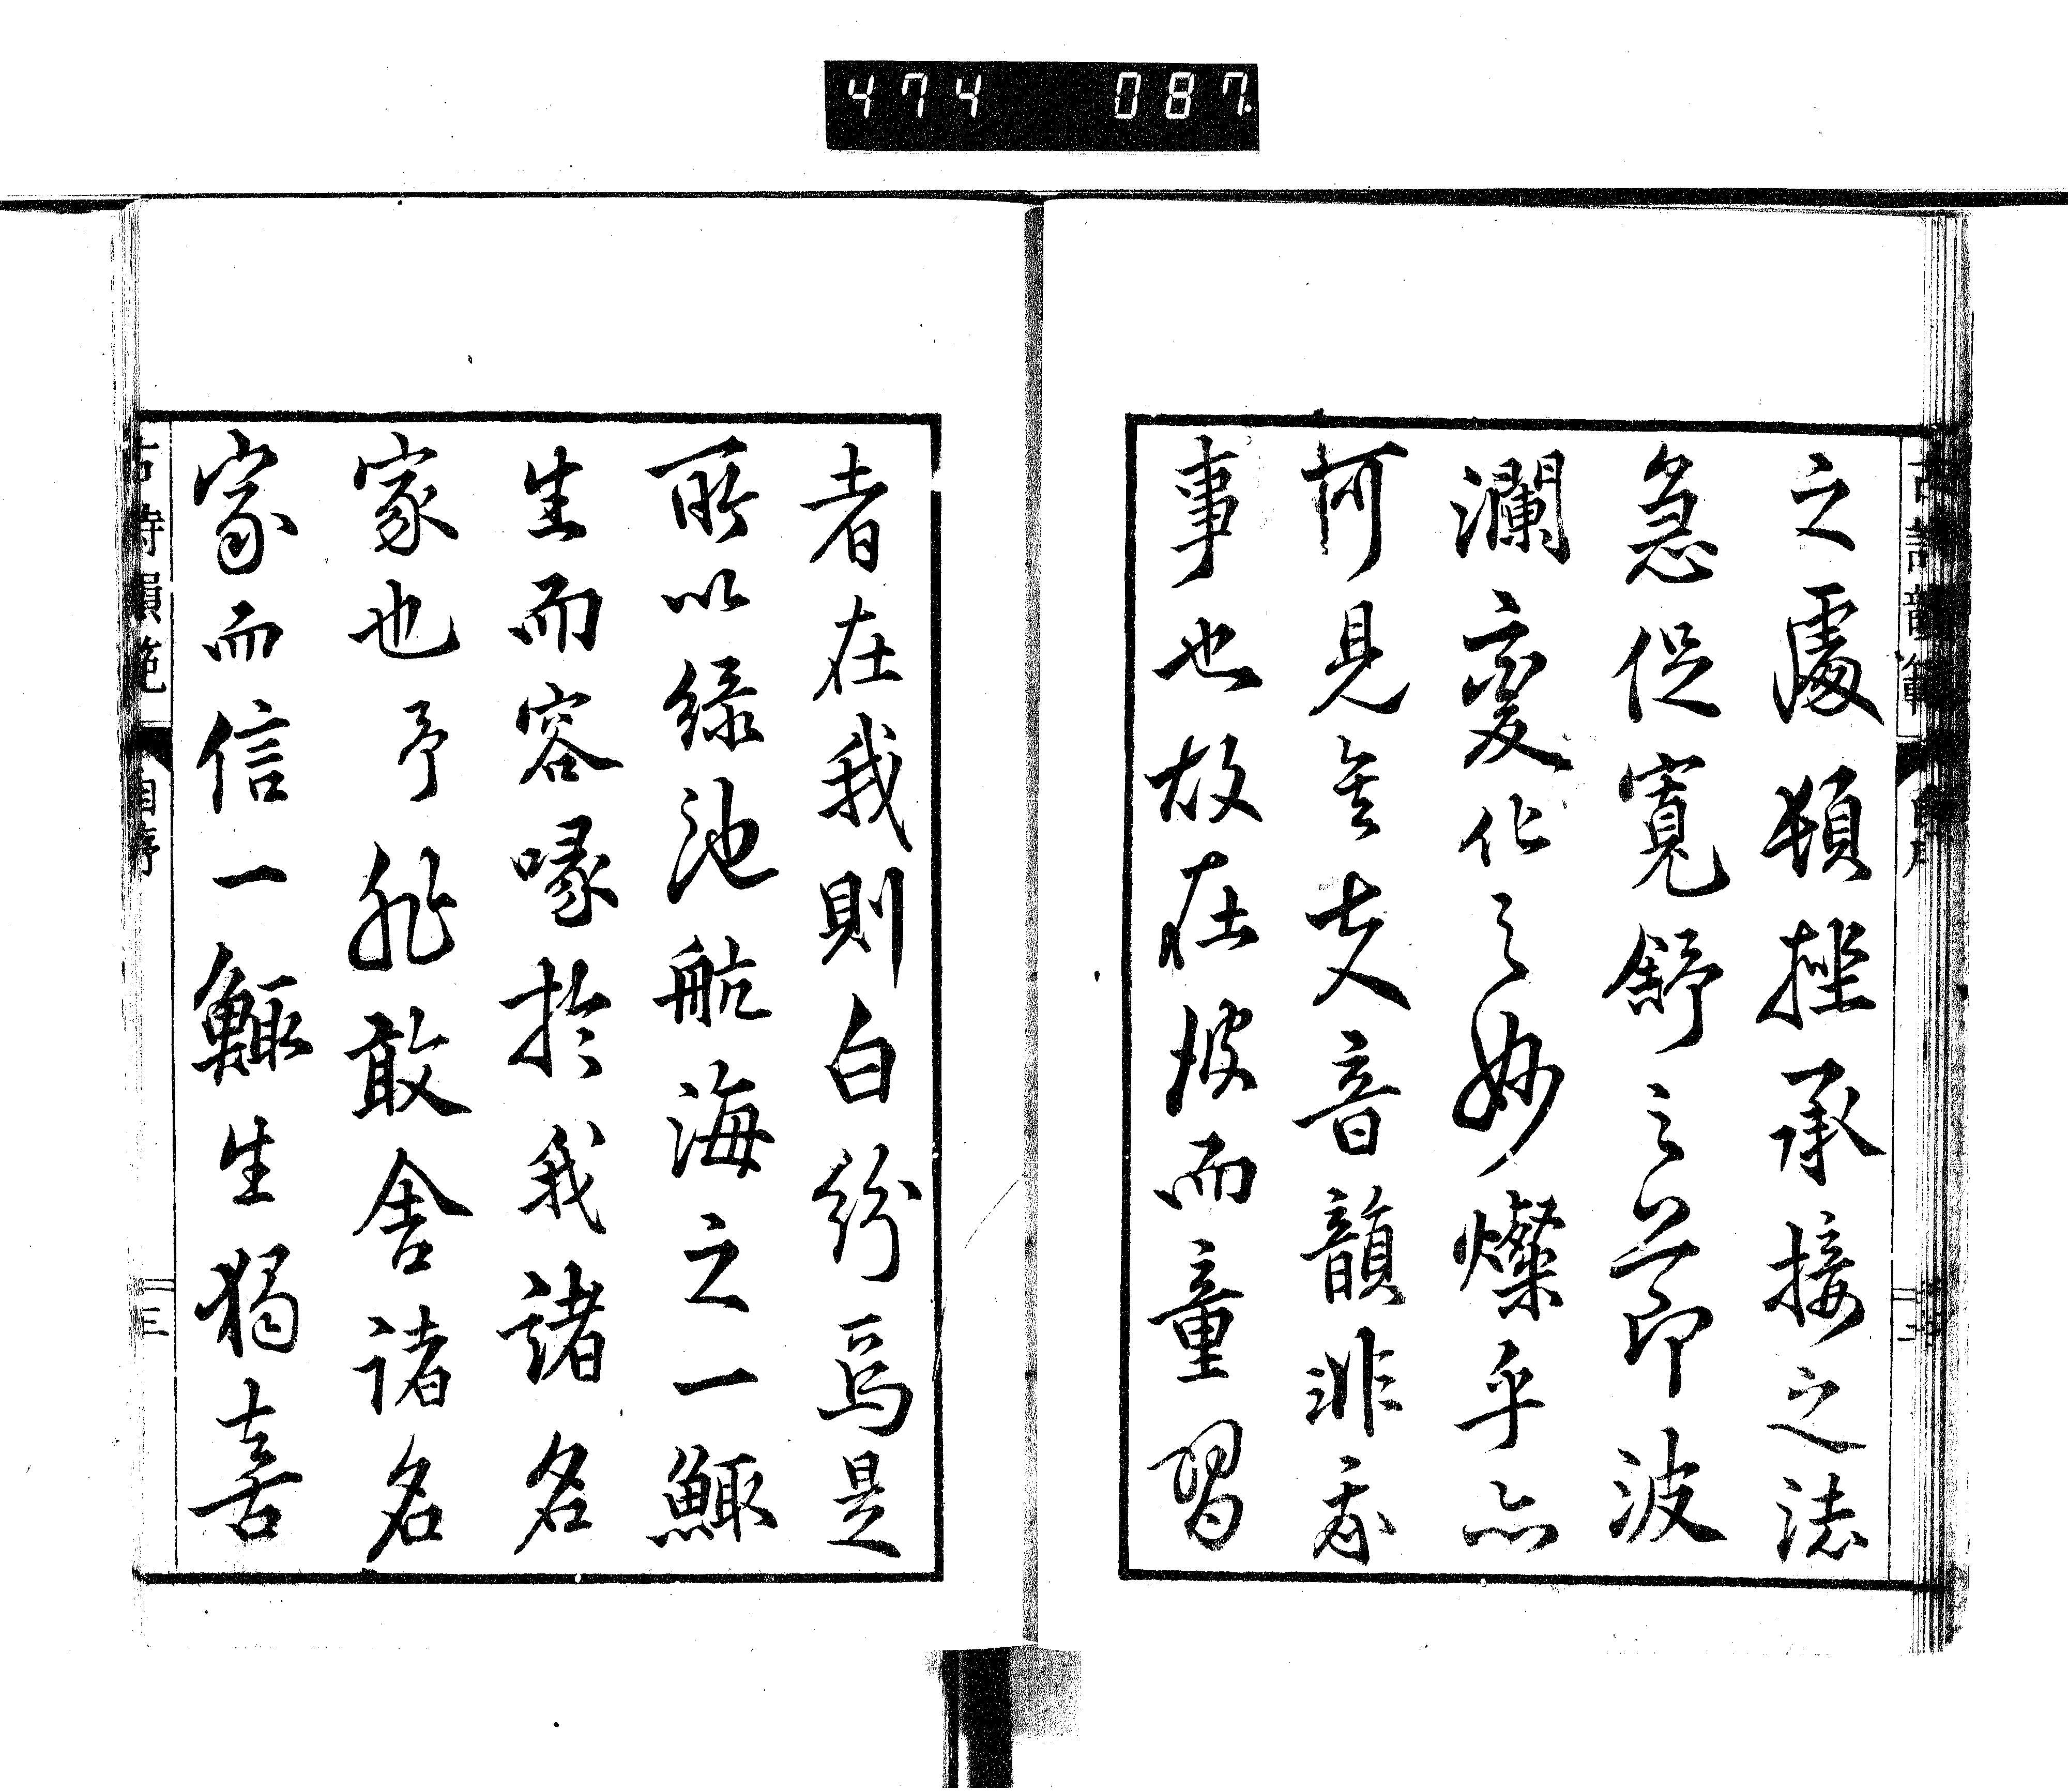 474 087
之處頓挫承接之法
急促寬舒之節波
瀾變化之妙燦乎亦
可見矣夫音韻非我
事也故在彼而童習
者在我則白紛焉是
所以綠池航海之一鯫
生而容喙於我諸名
家也予非敢舍諸名
家而信一鯫生獨喜
古詩韻範
自序
三